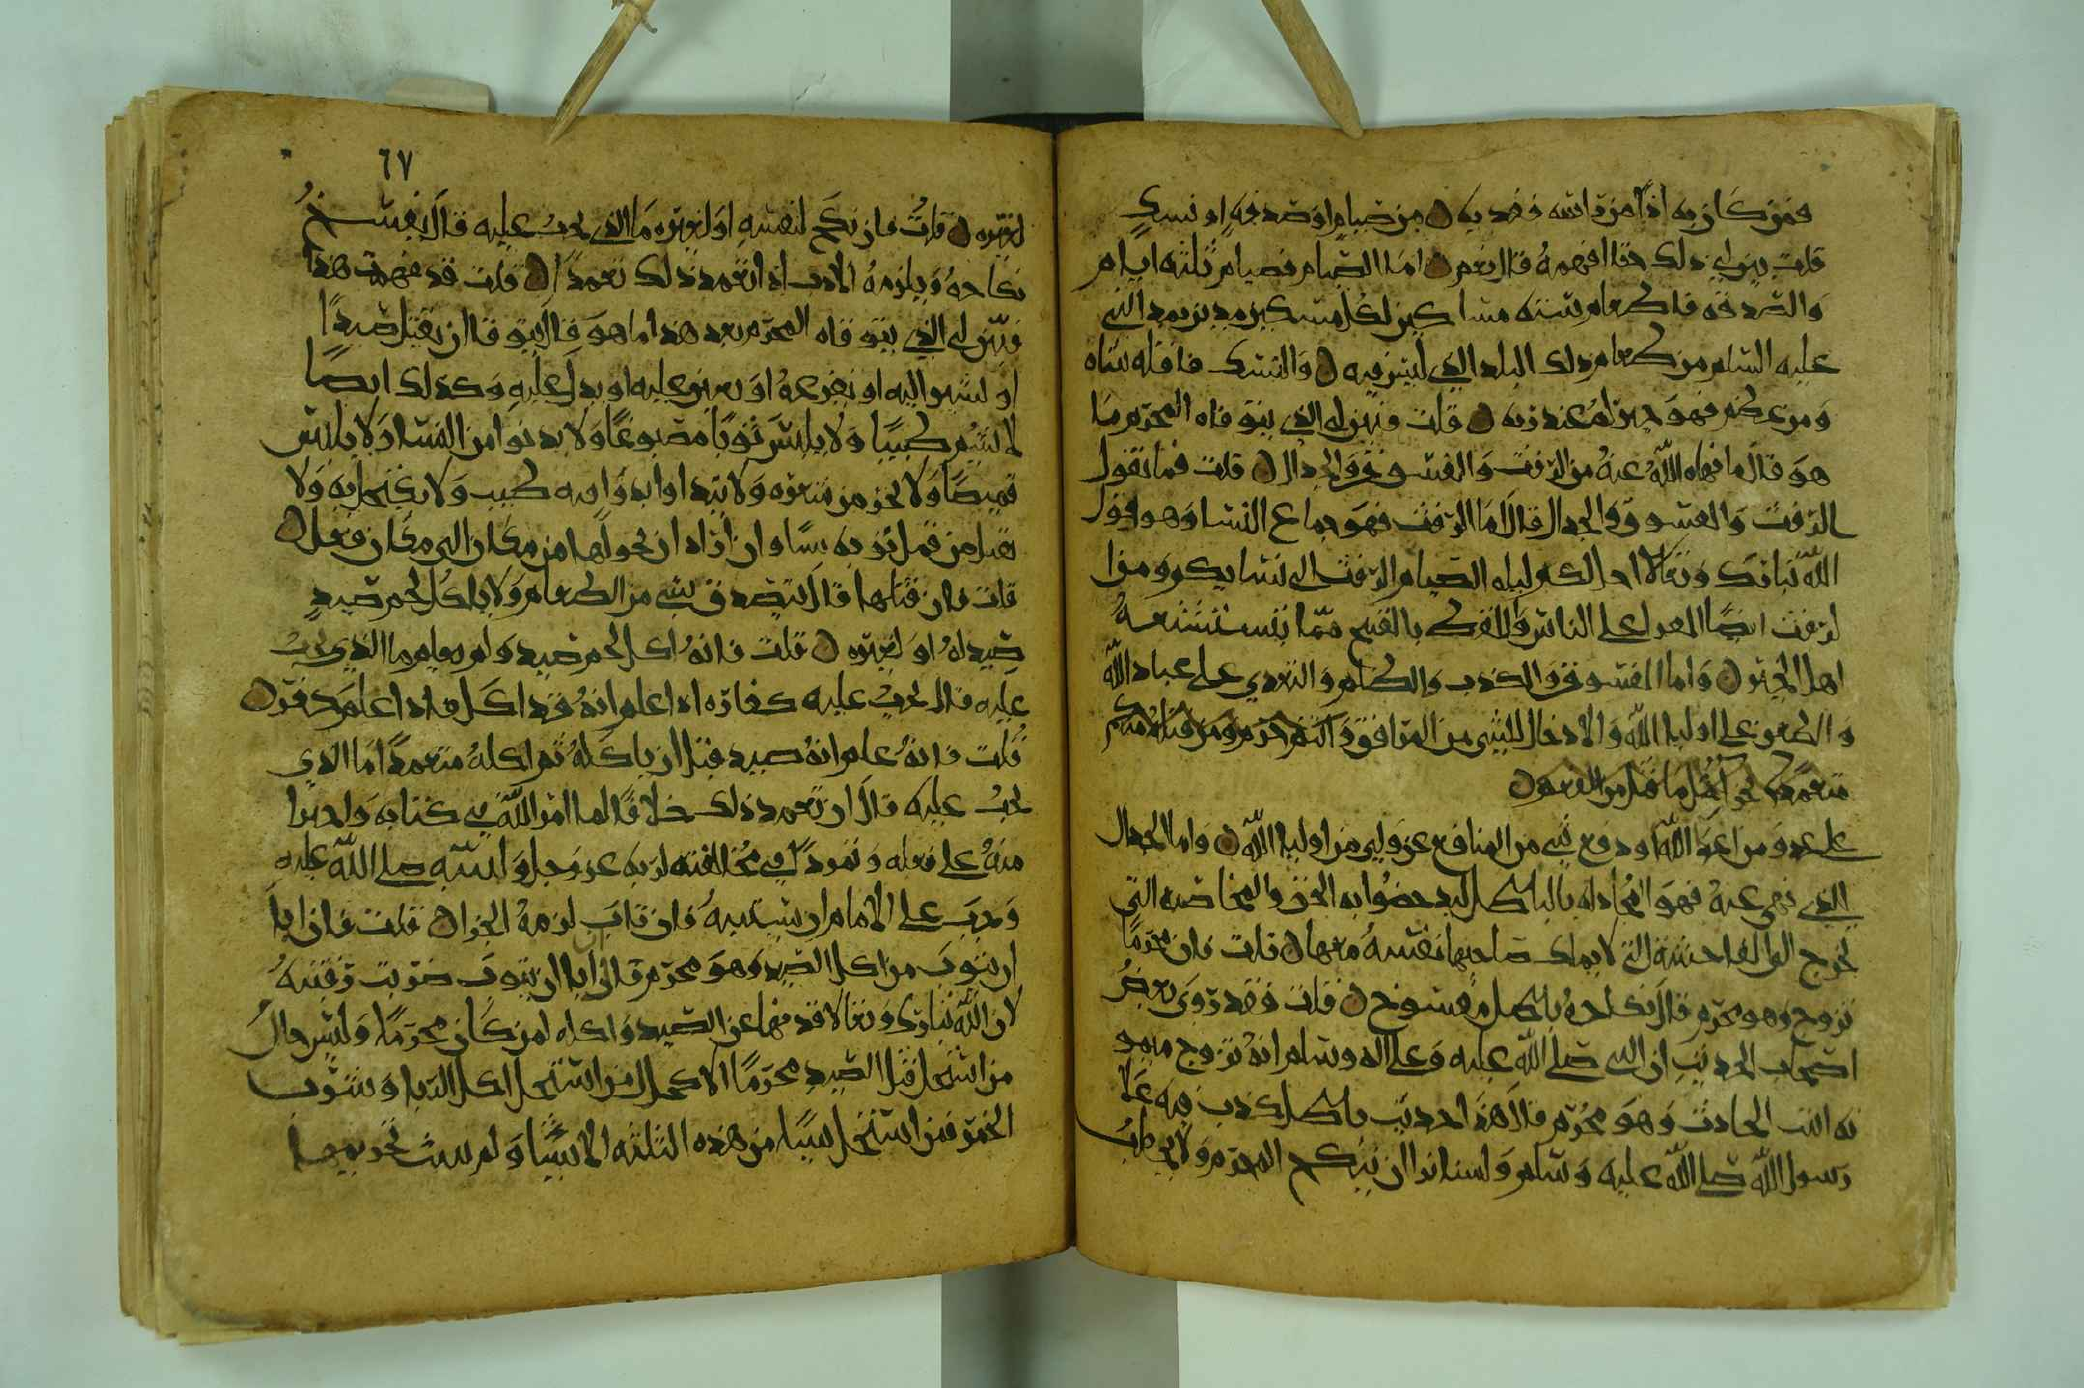 فمن كان به اذا من راسه ففديه من صيام او صدقه او نسك
قلت بين لي ذلك حتا افهمه قال نعم اما الصيام فصيام ثلثه ايام
والصدقه فاطعام سته مساكين لكل مسكين مدين بمد النبي
عليه السلام من طعام ذلك البلد الذي ليس فيه والنسك فاقله شاه
ومن عظم فهو خير له عند ربه قلت فبين لي الذي يتوقاه المحرم ما
هو قال ما نهاه الله عنه من الرفث والفسوق والجدال قلت فما تقول
الرفث والفسوق والجدال قال اما الرفث فهو جماع النسا وهو قول
الله تبارك وتعالا احل لكم ليله الصيام الرفث الى نسايكم ومن
الرفث ايضا القول على الناس واللفظ بالقبيح مما يستشنعه
اهل الخير واما الفسوق والكذب والظلم والتعدي على عباد الله
والطعن على اوليا الله والادخال للشي من المرافق وانتم حرم ومن قتله منكم
متعمدا فجزا مثل ما قتل من النعم
على عدو من اعدا الله او دفع شي من المنافع عن ولي من اوليا الله واما الجدال
الذي نهي عنه فهو المجادله بالباطل ليدحضوا به الحق والمخاصمه التي
تخرج الى الفاحشه التي لا يملك صاحبها نفسه معها قلت فان محرما
تزوج وهو محرم قال نكاحه باطل مفسوخ قلت فقد روى بعض
اصحاب الحديث ان النبي صلى الله عليه وعلى اله وسلم انه تزوج ميمو
نه ابنت الحارث وهو محرم قال هذا حديث باطل كذب فيه على
رسول الله صلى الله عليه وسلم ولسنا نرا ان ينكح المحرم ولا يخطب
٦٧
لغيره قلت فان نكح لنفسه او لغيره ما الذي يجب عليه قال يفسخ
نكاحه ويلزمه الادب اذا تعمد ذلك تعمدا قلت قد فهمت هذا
فبين لي الذي يتوقاه المحرم بعد هذا ما هو قال يتوقا ان يقتل صيدا
او يشير اليه او يفزعه او يعين عليه او يدل عليه وكذلك ايضا
لا يشم طيبا ولا يلبس ثوبا مصبوغا ولا يدنوا من النسا ولا يلبس
قميصا ولا يجز من شعره ولا يتداوا بدوا فيه طيب ولا يكتحل به ولا
يقتل من قمل ثوبه شيا وان اراد ان يحولها من مكان الى مكان فعل
قلت فان قتلها قال يتصدق بشي من الطعام ولا ياكل لحم صيد
صيد له او لغيره قلت فانه اكل لحم صيد ولم يعلم ما الذي يجب
عليه قال يجب عليه كفاره اذا علم انه قد اكل
قلت فانه علم انه صيد قبل ان ياكله ثم اكله متعمدا ما الذي
يجب عليه قال ان تعمد ذلك خلافا لما امر الله في كتابه واجترا
منه على فعله وتمردا في مخالفته لربه عز وجل ولنبيه صلى الله عليه
وجب على الامام ان يستتيبه فان تاب لزمه الجزا قلت فان ابا
ان يتوب من اكل الصيد وهو محرم قال ان ابا ان يتوب ضربت رقبته
لان الله تبارك وتعالا قد نهى عن الصيد واكله لمن كان محرما وليس حال
من استحل قتل الصيد محرما الا كحال من استحل اكل الربا وشرب
الخمر فمن استحل شيا من هذه الثلثه الاشيا ولم يثبت تحريمها